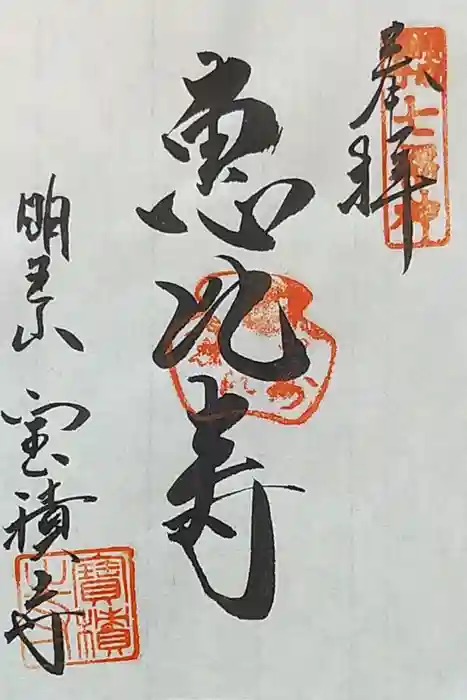 奉拝
恵比寿
明王山 宝積寺
寶積